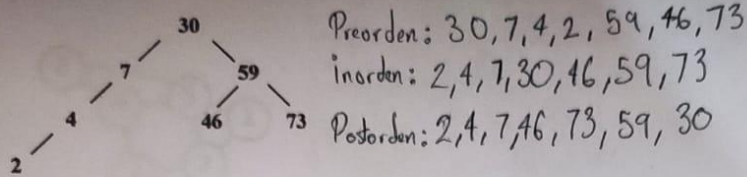 30
7
59
4
46
73
2
Preorden: 30, 7, 4, 2, 59, 46, 73
inorden: 2, 4, 7, 30, 46, 59, 73
Postorden: 2, 4, 7, 46, 73, 59, 30